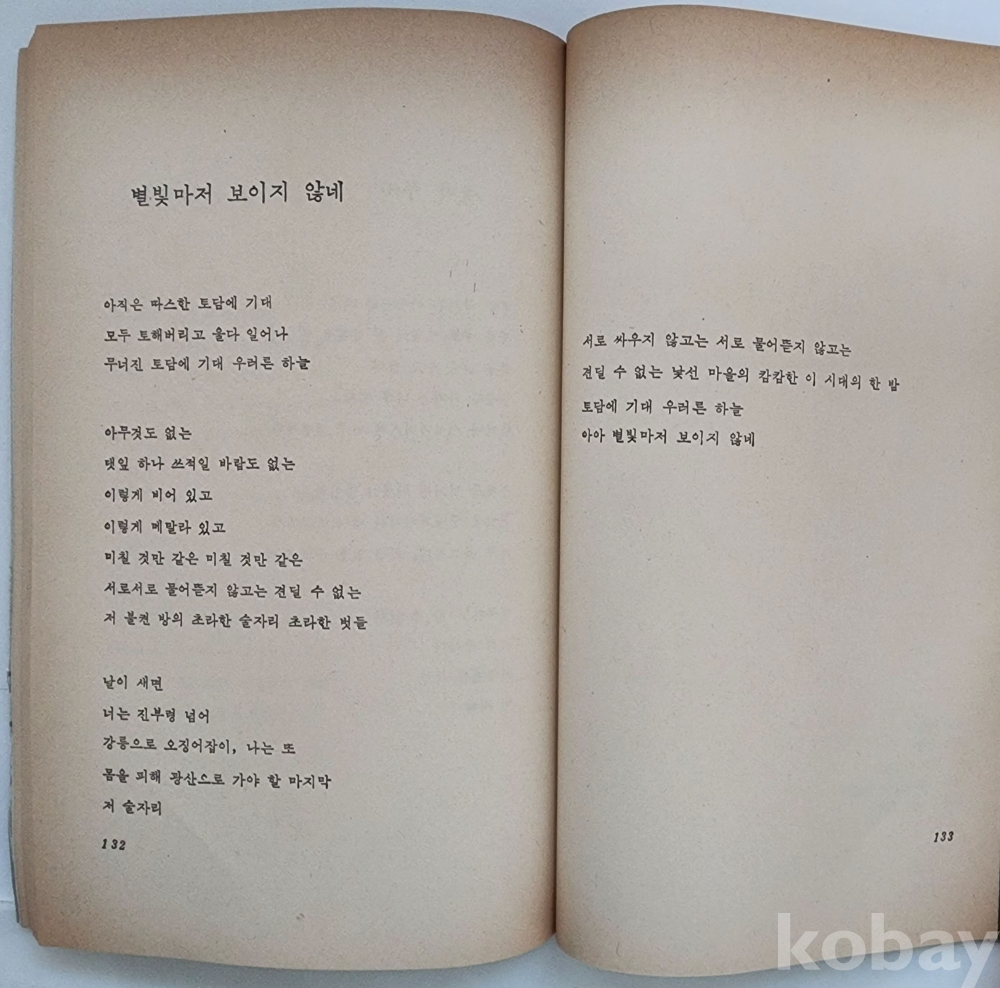 별빛마저 보이지 않네
아직은 따스한 토담에 기대
모두 토해버리고 울다 일어나
무너진 토담에 기대 우러른 하늘
아무것도 없는
댓잎 하나 쓰적일 바람도 없는
이렇게 비어 있고
이렇게 메말라 있고
미칠 것만 같은 미칠 것만 같은
서로서로 물어뜯지 않고는 견딜 수 없는
저 불켠 방의 초라한 술자리 초라한 벗들
날이 새면
너는 진부령 넘어
강릉으로 오징어잡이, 나는 또
몸을 피해 광산으로 가야 할 마지막
저 술자리
132
서로 싸우지 않고는 서로 물어뜯지 않고는
견딜 수 없는 낯선 마을의 캄캄한 이 시대의 한 밤
토담에 기대 우러른 하늘
아아 별빛마저 보이지 않네
133
kobay